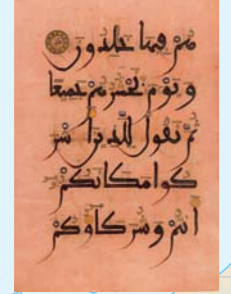 هم فيها خلدون
ويوم نحشرهم جميعا
ثم نقول للذين أشر
كوا مكانكم
أنتم وشركاؤكم